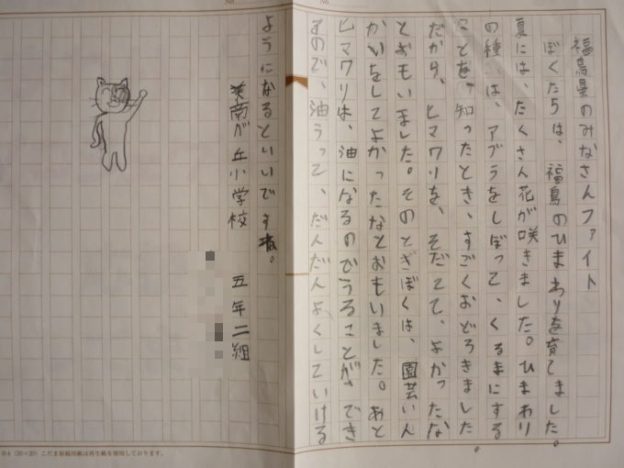 福島県のみなさんファイト
ぼくたちは、福島のひまわりを育てました。
夏には、たくさん花が咲きました。ひまわり
の種は、アブラをしぼって、くるまにする
ことを、知ったとき、すごくおどろきました。
だから、ヒマワリを、そだてて、よかったな
とおもいました。そのときぼくは、園芸いん
かいをしてよかったなとおもいました。あと
ヒマワリは、油になるのでうることが、でき
るので、油うって、だんだんよくしていける
ようになるといいですね。
美南が丘小学校 五年二組
B4（20×20）こだま原稿用紙は再生紙を使用しております。